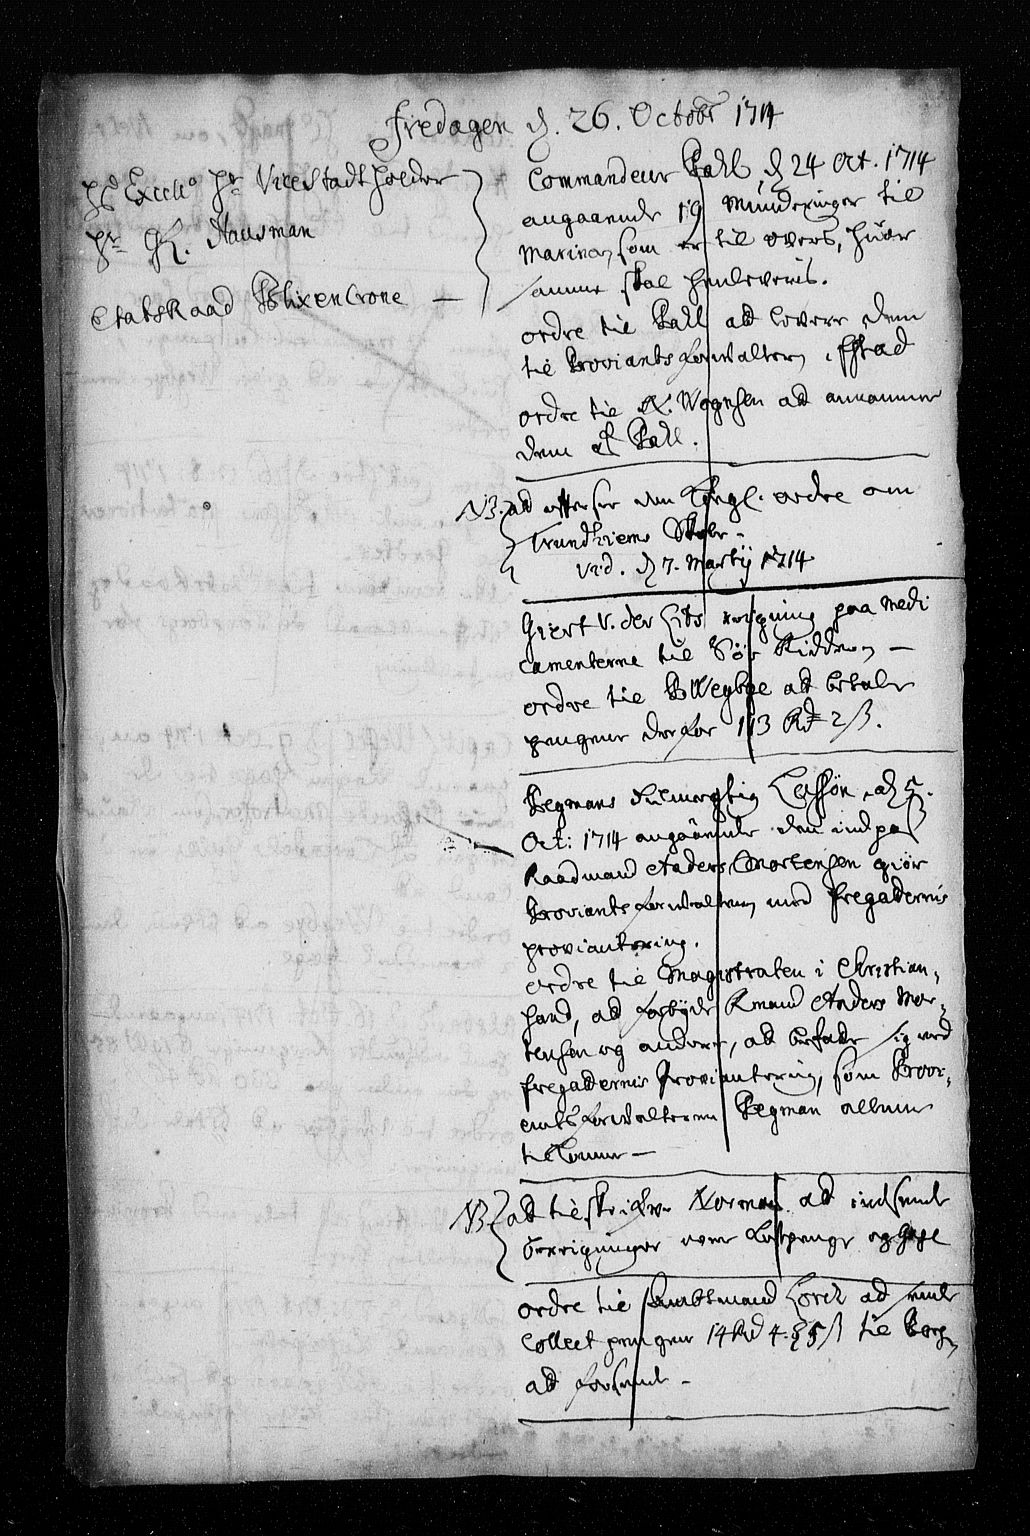 Fredagen d. 26. Octobr 1714
Hs Excell. Hr ViceStadtholder
Hr G. Hausman
Etatsraad Blixencrone —
Commandeur Pahl d 24 Oct. 1714
angaaende 19 Munderinger til
Marinen som er til overs, huor
samme skal henleveris.
ordre til Pall at levere dem
til Proviantforwalteren i fstad
ordre til Wognsen at annamme
dem af Pall.
NB. at efterse den Kongl. ordre om
Trundhiems
vid. d 7. Martij 1714
Giert V. der Lids regning paa Medi
camenterne til Søe
ordre til PWeybye at betale
pengene derfor 113 Rd 2 ß.
Begmans Erlæssøn, d 5.
Oct: 1714 angaaende den indpas
Raadmand Anders Mortensen giør
Proviantforwalteren med Fregadernis
proviantering.
ordre til Magistraten i Christian,
sand, at forbyde Rmand Anders Mor,
tensen og andre, at befatte sig med
fregadernis Proviantering, som Provi,
antsforwalteren Begman allene
tilkommer —
NB at tilskrifve Korman at indsende
Berigninger over Kostpenge og Gage
ordre til Ambtmand Lorck at sende
Collect pengene 14 Rd 4 ß til Borg,
at forsende —